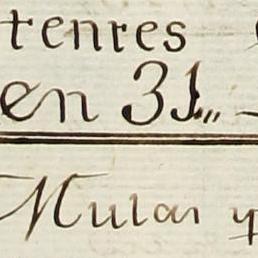 tentes
en 31..
Mulas y